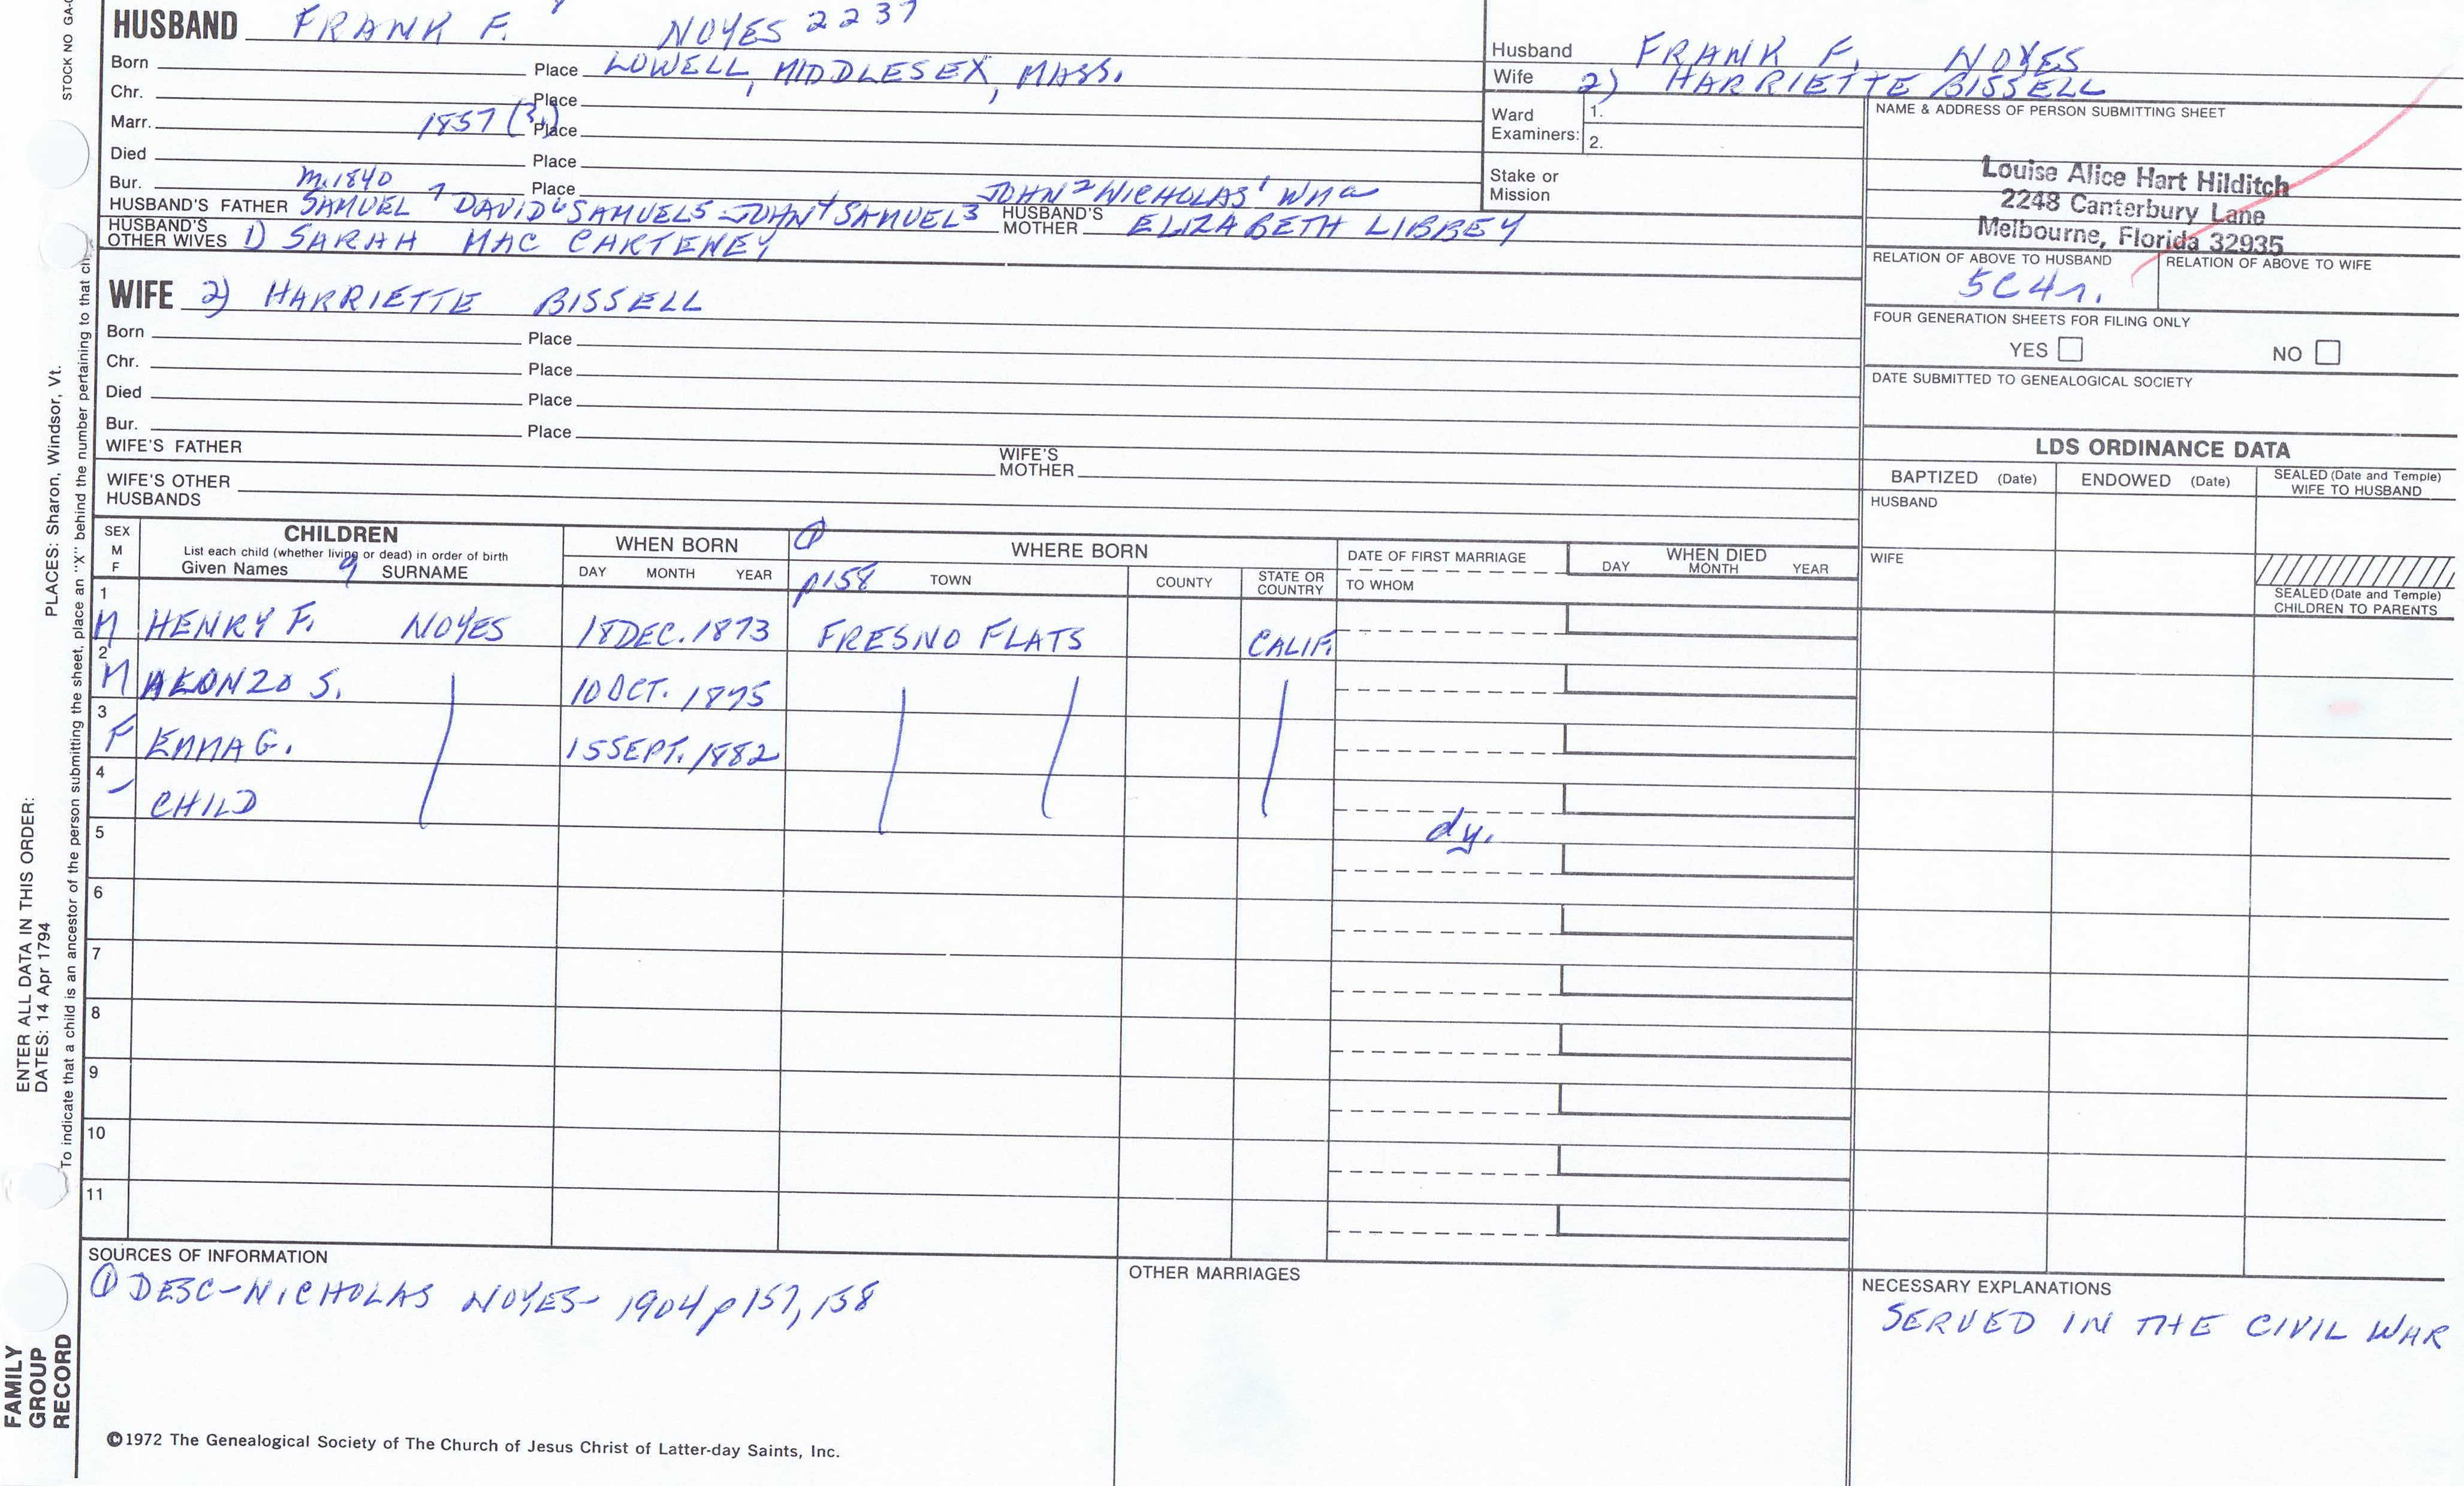 STOCK NO GA-
HUSBAND FRANK F. NOYES 2237
Born Place LOWELL, MIDDLESEX, MASS.
Chr. Place
Marr. 1857 (?) Place
Died Place
Bur. Place
m. 1840 JOHN2 NICHOLAS1 Wma
HUSBAND'S FATHER SAMUEL7 DAVID6 SAMUEL5 JOHN4 SAMUEL3 HUSBAND'S MOTHER ELIZABETH LIBBEY
HUSBAND'S OTHER WIVES 1) SARAH MAC CARTENEY
WIFE 2) HARRIETTE BISSELL
Born Place
Chr. Place
Died Place
Bur. Place
WIFE'S FATHER WIFE'S MOTHER
WIFE'S OTHER HUSBANDS
Husband FRANK F. NOYES
Wife 2) HARRIETTE BISSELL
Ward Examiners: 1.
2.
Stake or Mission
NAME & ADDRESS OF PERSON SUBMITTING SHEET
Louise Alice Hart Hilditch
2248 Canterbury Lane
Melbourne, Florida 32935
RELATION OF ABOVE TO HUSBAND RELATION OF ABOVE TO WIFE
5C4r.
FOUR GENERATION SHEETS FOR FILING ONLY
YES NO
DATE SUBMITTED TO GENEALOGICAL SOCIETY
LDS ORDINANCE DATA
BAPTIZED (Date) ENDOWED (Date) SEALED (Date and Temple) WIFE TO HUSBAND
HUSBAND
WIFE
SEALED (Date and Temple) CHILDREN TO PARENTS
SEX M F CHILDREN WHEN BORN ① WHERE BORN DATE OF FIRST MARRIAGE WHEN DIED
List each child (whether living or dead) in order of birth
Given Names 9 SURNAME DAY MONTH YEAR p158 TOWN COUNTY STATE OR COUNTRY TO WHOM DAY MONTH YEAR
1 M HENRY F. NOYES 18 DEC. 1873 FRESNO FLATS CALIF.
2 M ALONZO S. 10 OCT. 1875
3 F EMMA G. 15 SEPT. 1882
4 - CHILD dy.
5
6
7
8
9
10
11
SOURCES OF INFORMATION
① DESC-NICHOLAS NOYES- 1904 p157, 158
OTHER MARRIAGES
NECESSARY EXPLANATIONS
SERVED IN THE CIVIL WAR
©1972 The Genealogical Society of The Church of Jesus Christ of Latter-day Saints, Inc.
FAMILY GROUP RECORD
ENTER ALL DATA IN THIS ORDER:
DATES: 14 Apr 1794
PLACES: Sharon, Windsor, Vt.
To indicate that a child is an ancestor of the person submitting the sheet, place an "X" behind the number pertaining to that